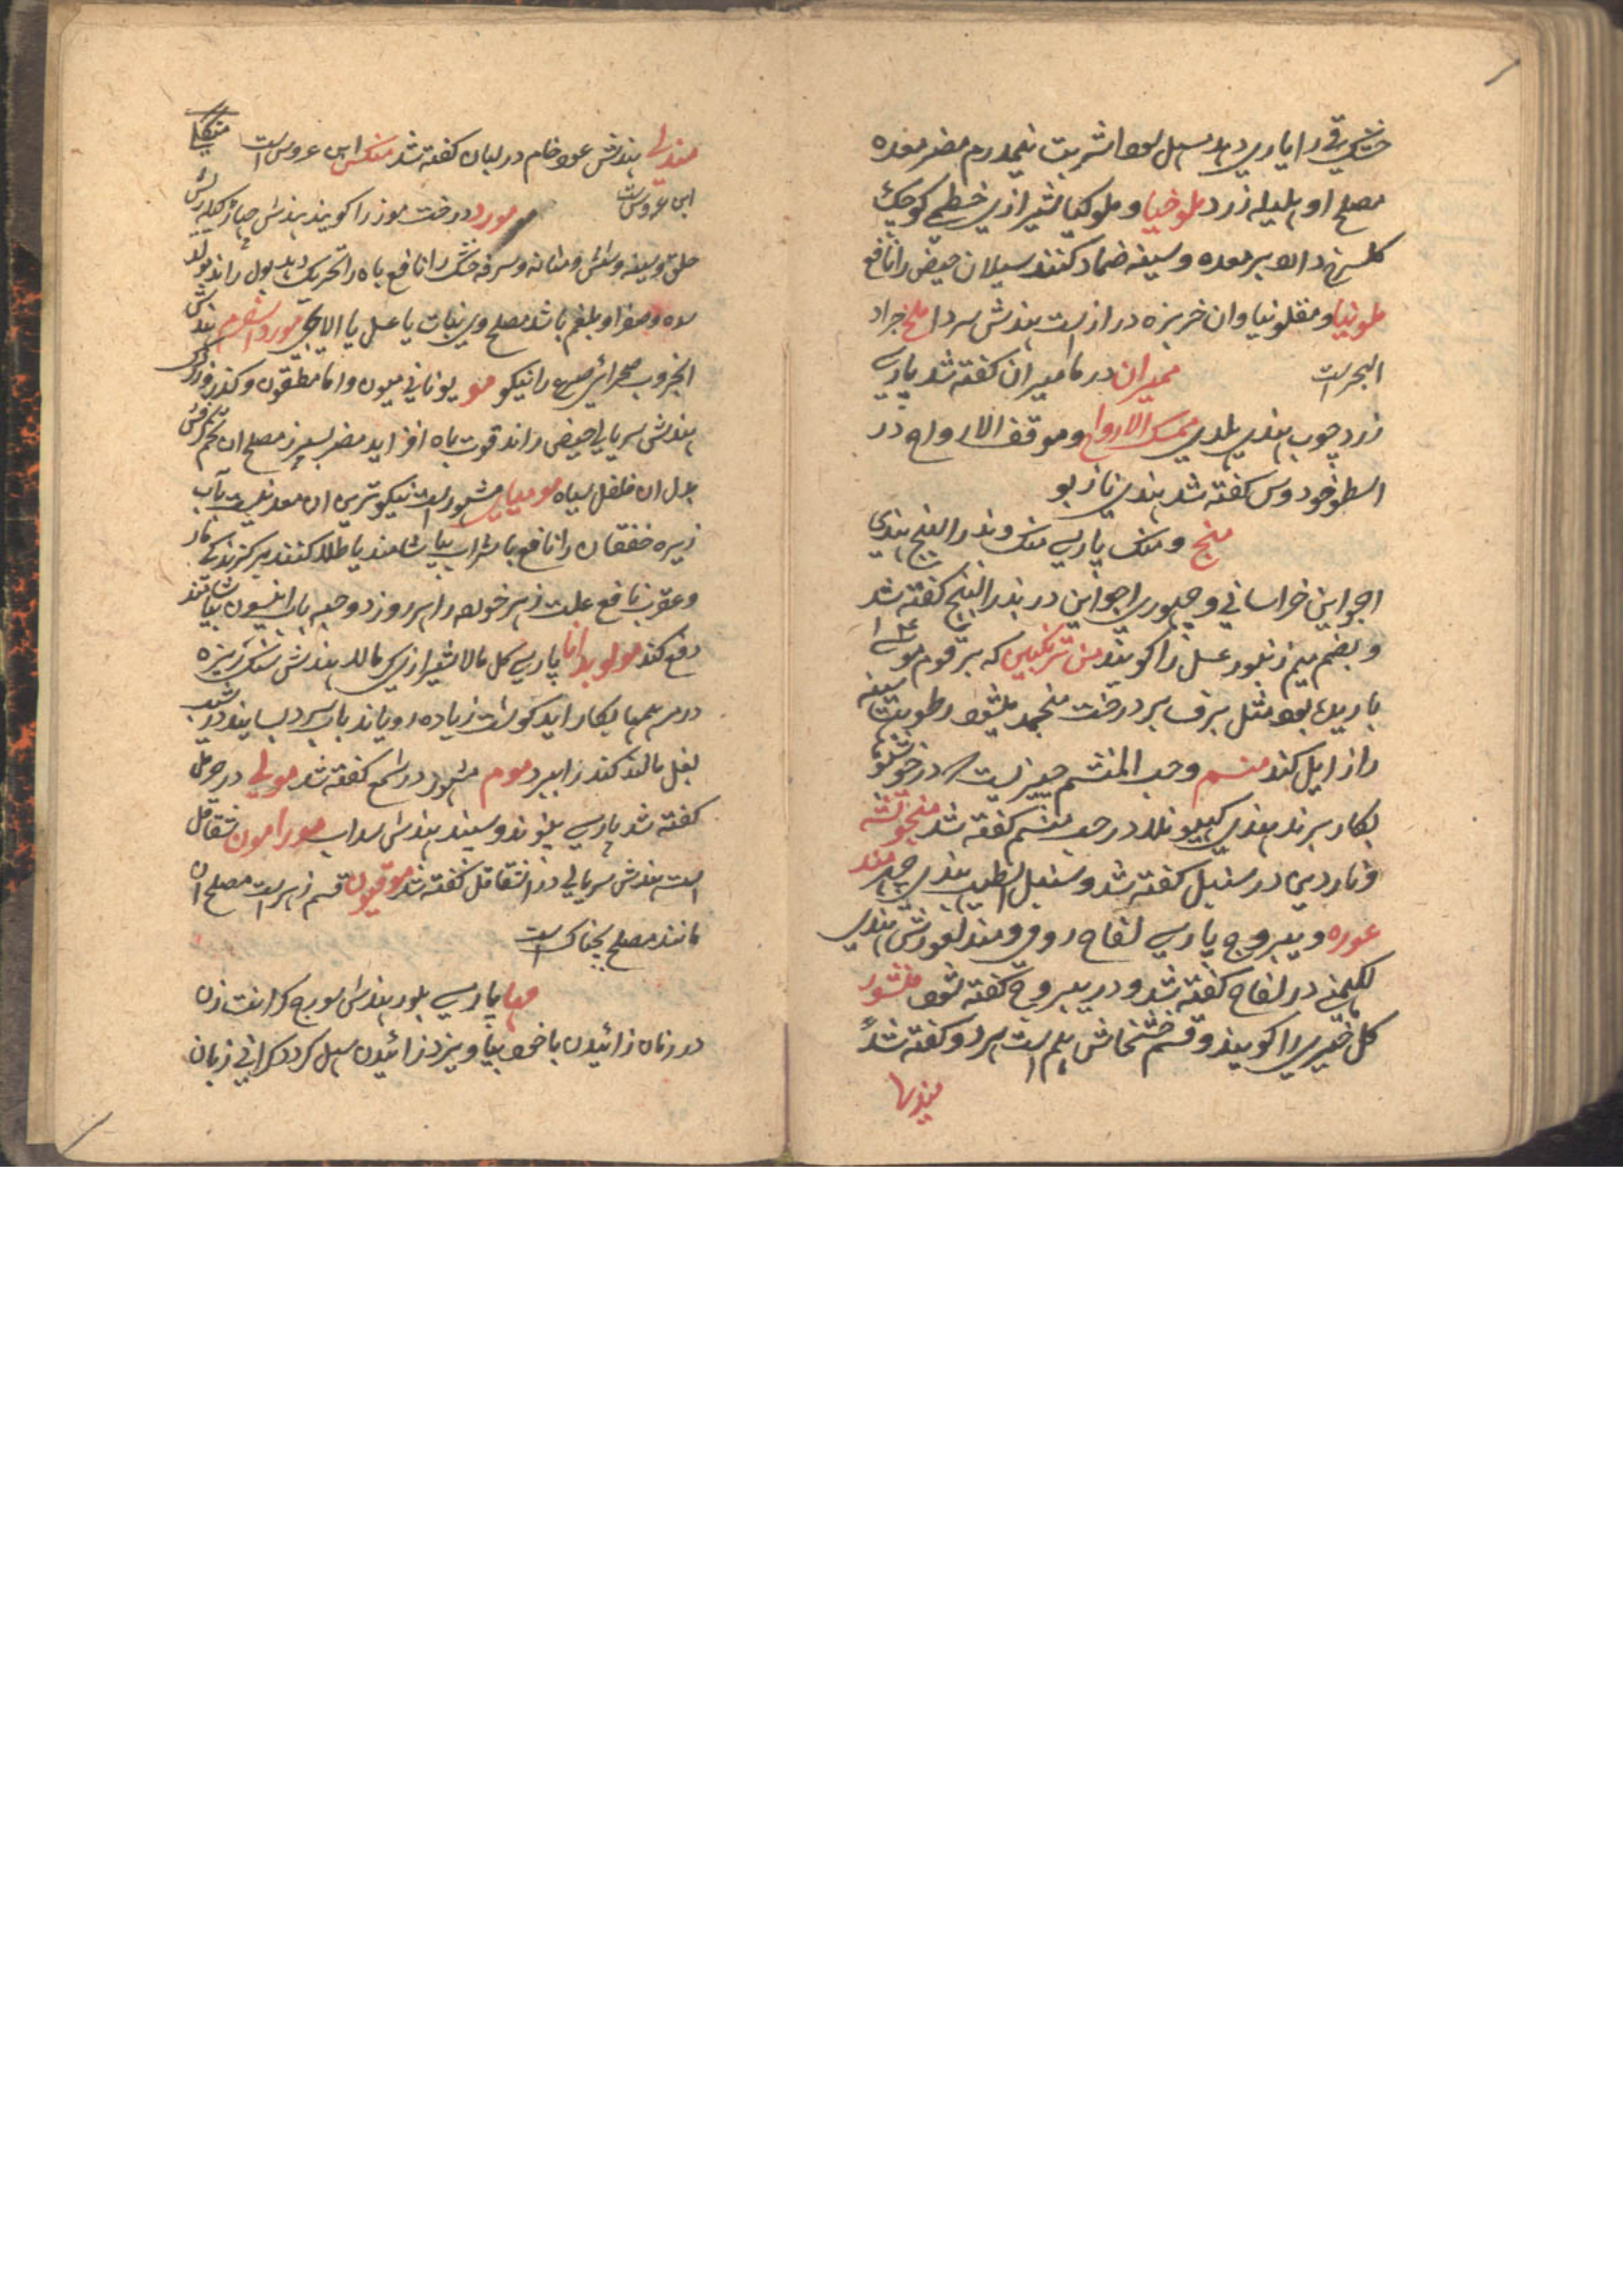 خشک وقی را یاری دهد مسهل بود شربت نیمدرم مضر معده
مصلح او هلیله زرد ملوخیا و ملوکیا شیرازی خطمی کوچک
کلسرخ دالا بر معده و سینه ضماد کنند سیلان حیض را نافع
ملونیا و مقلونیا وان خربزه دراز است هندش سردا ملخ جراد
البحر است ممیران در مامیران کفته شد پارسی
زرد چوب هندی هلدی ممسک الارواح و موقف الارواح در
اسطوخودوس کفته شد هندی نازبو
منج و منک پارسی منک و بذر البنج هندی
اجواین خراسانی و چهوری اجواین در بذر البنج کفته شد
و بضم میم زنبور عسل را کویند من ترنکبین که بر قوم موسی ع
باریده بود مثل برف بر درخت منجمد میشود رطوبت سینه
را زایل کند منسم وحب المنشم چیزیست در خوشبو
بکار برند هندی کپیو نلا در حب منسم کفته شد منجوشه
و ناردین در سنبل کفته شد و سنبل الطیب هندی چهر مند
عوره و یبروج پارسی لفاح رومی و مندلغورش هندی
لکهمنی در لفاح کفته شد و در یبروج کفته شود منثور
کل خیری را کویند و قسم خشخاش هم است هر دو کفته شد
مندها
مندلی هندش عود خام در لبان کفته شد منکس ابن عروس است
ابن عروست مورد درخت موز را کویند هندش
حلق و سینه و شش و مثانه و سرفه خشک را نافع باه را تحریک دهد بول راند مولد
سده و صفرا و بلغم باشد مصلح وی نبات یا عسل یا الایچی مورد اسفرم هندش
الخروب صحرائی صرع را نیکو مو یونانی میون و اما مطیقون و کندر
هندش سریالی حیض راند قوت باه افزاید مضر بسپرز مصلح ان تخم کرفس
بدل ان فلفل سیاه مومیای مشهور است نیکوترین ان معدنیست بآب
زیره خفقان را نافع با شراب بیاشامند یا طلا کنند بر کزندکی مار
و عقرب نافع علت زهر خورده را هر روز دو حبه با رانیسون بیاشامند
دفع کند مولوبدانا پارسی کل مالا شیرازی کل مالا هندش سنک ریزه
در مرهمها بکار اید کوشت زیاده رویاند باب سرد بسایند در شیب
بغل مالند کند را ببرد موم مشهور در شمع کفته شد مولی در حرمل
کفته شد پارسی بلنوند و سپند هندش سداب مورامون شقاقل
است هندش سریالی در اشقاقل کفته شد موقیون قسم زهر است مصلح ان
مانند مصلح بچناک است
مها پارسی بلور هندش سورج کرانت زن
در زمان زائیدن با خود بیاویزد زائیدن سهل کردد کرانی زبان